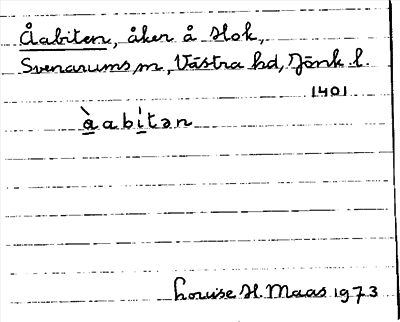 Åabiten, åker å Hok,
Svenarums sn, Västra hd, Jönk. l.
1401
à̱abí̱tən
Louise H. Maas 1973